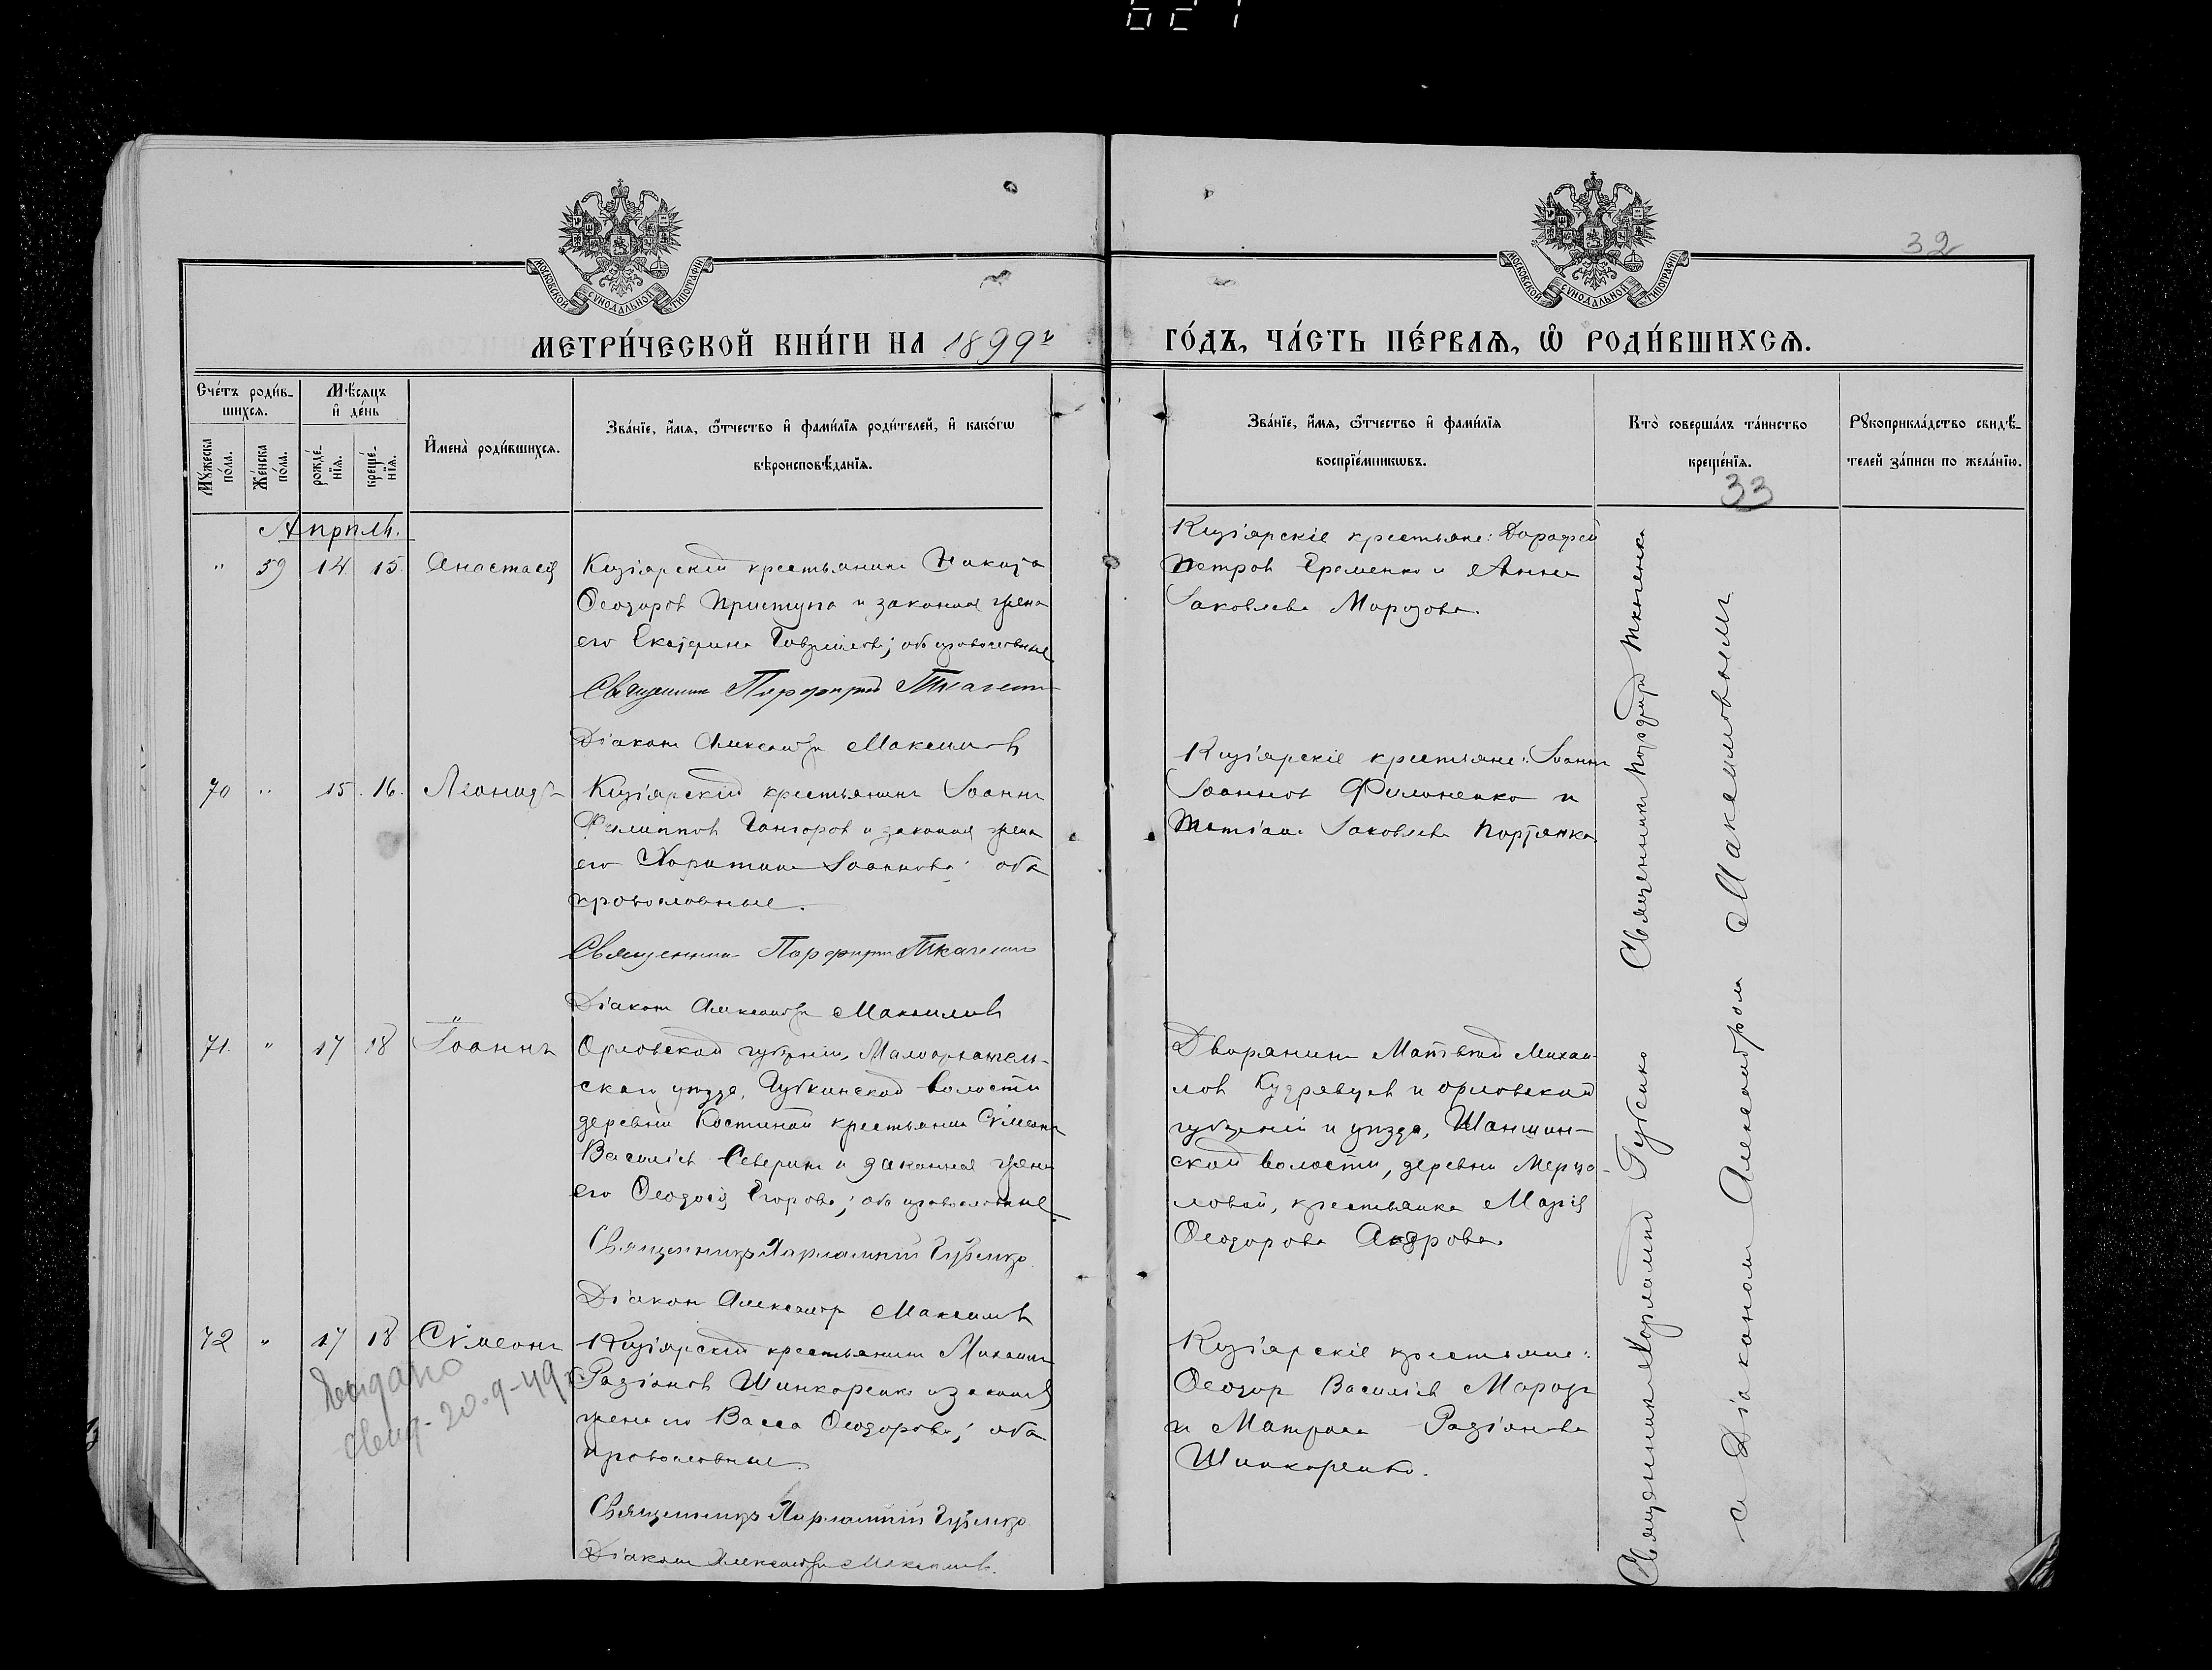 627
32
МОСКОВСКОЙ СѴНОДАЛЬНОЙ ТИПОГРАФІИ
МОСКОВСКОЙ СѴНОДАЛЬНОЙ ТИПОГРАФІИ
МЕТРИ́ЧЕСКОЙ КНИ́ГИ НА 1899й
ГО́ДЪ, ЧА́СТЬ ПЕ́РВАѦ, Ѡ РОДИ́ВШИХСѦ.
Сче́тъ роди́в-
шихсѧ.
Мꙋ́жеска
по́ла.
Же́нска
по́ла.
Мѣ́сѧцъ
и҆ де́нь
рожде́-
нїѧ.
креще́-
нїѧ.
И҆мена̀ роди́вшихсѧ.
Зва́нїе, и҆́мѧ, ѻ҆́тчество и҆ фами́лїѧ роди́телей, и҆ како́гѡ
вѣроисповѣ́данїѧ.
Зва́нїе, и҆́мѧ, ѻ҆́тчество и҆ фами́лїѧ
воспрїе́мникѡвъ.
Кто̀ соверша́лъ та́инство
креще́нїѧ.
33
Рꙋкоприкла́дство свидѣ́-
телей за́писи по жела́нїю.
Апрѣль.
" 59 14 15. Анастасія
Кизіярскій крестьянинъ Никита
Ѳеодоровъ Приступа и законная жена
его Екатерина Гаврилова; оба православные
Священникъ Порфирій Ткаченко
Діаконъ Александръ Максимовъ
Кизіярскіе крестьяне: Дорофей
Петровъ Еременко и Анна
Іаковлева Морозова.
70 " 15. 16. Леонидъ
Кизіярскій крестьянинъ Іоаннъ
Филипповъ Гонгоровъ и законная жена
его Харитина Іоаннова; оба
православные.
Священникъ Порфирій Ткаченко
Діаконъ Александръ Максимовъ
Кизіярскіе крестьяне: Іоаннъ
Іоанновъ Филоненко и
Татіана Іаковлева Портянка.
71. " 17 18 Іоаннъ
Орловской губерніи, Малоархангель-
скаго уѣзда, Губкинской волости
деревни Костиной крестьянинъ Сѵмеонъ
Василіевъ Северинъ и законная жена
его Ѳеодосія Егорова; оба православные.
Священникъ Харлампій Губенко.
Діаконъ Александръ Максимовъ
Дворянинъ Матвѣй Михаи-
ловъ Кудрявцевъ и орловской
губерніи и уѣзда, Шаншин-
ской волости, деревни Мерца-
ловой, крестьянка Марія
Ѳеодорова
72 " 17 18 Сѵмеонъ
Кизіярскій крестьянинъ Михаилъ
Радіоновъ Шинкаренко и законная
жена его Васса Ѳеодорова; оба
православные.
Священникъ Харлампій Губенко.
Діаконъ Александръ Максимовъ.
Кизіярскіе крестьяне:
Ѳеодоръ Василіевъ Морозъ
и Матрона Радіонова
Шинкаренко.
20.9-49
Священникъ Харлампій Губенко Священникъ Порфирій Ткаченко
съ Діакономъ Александромъ Максимовымъ